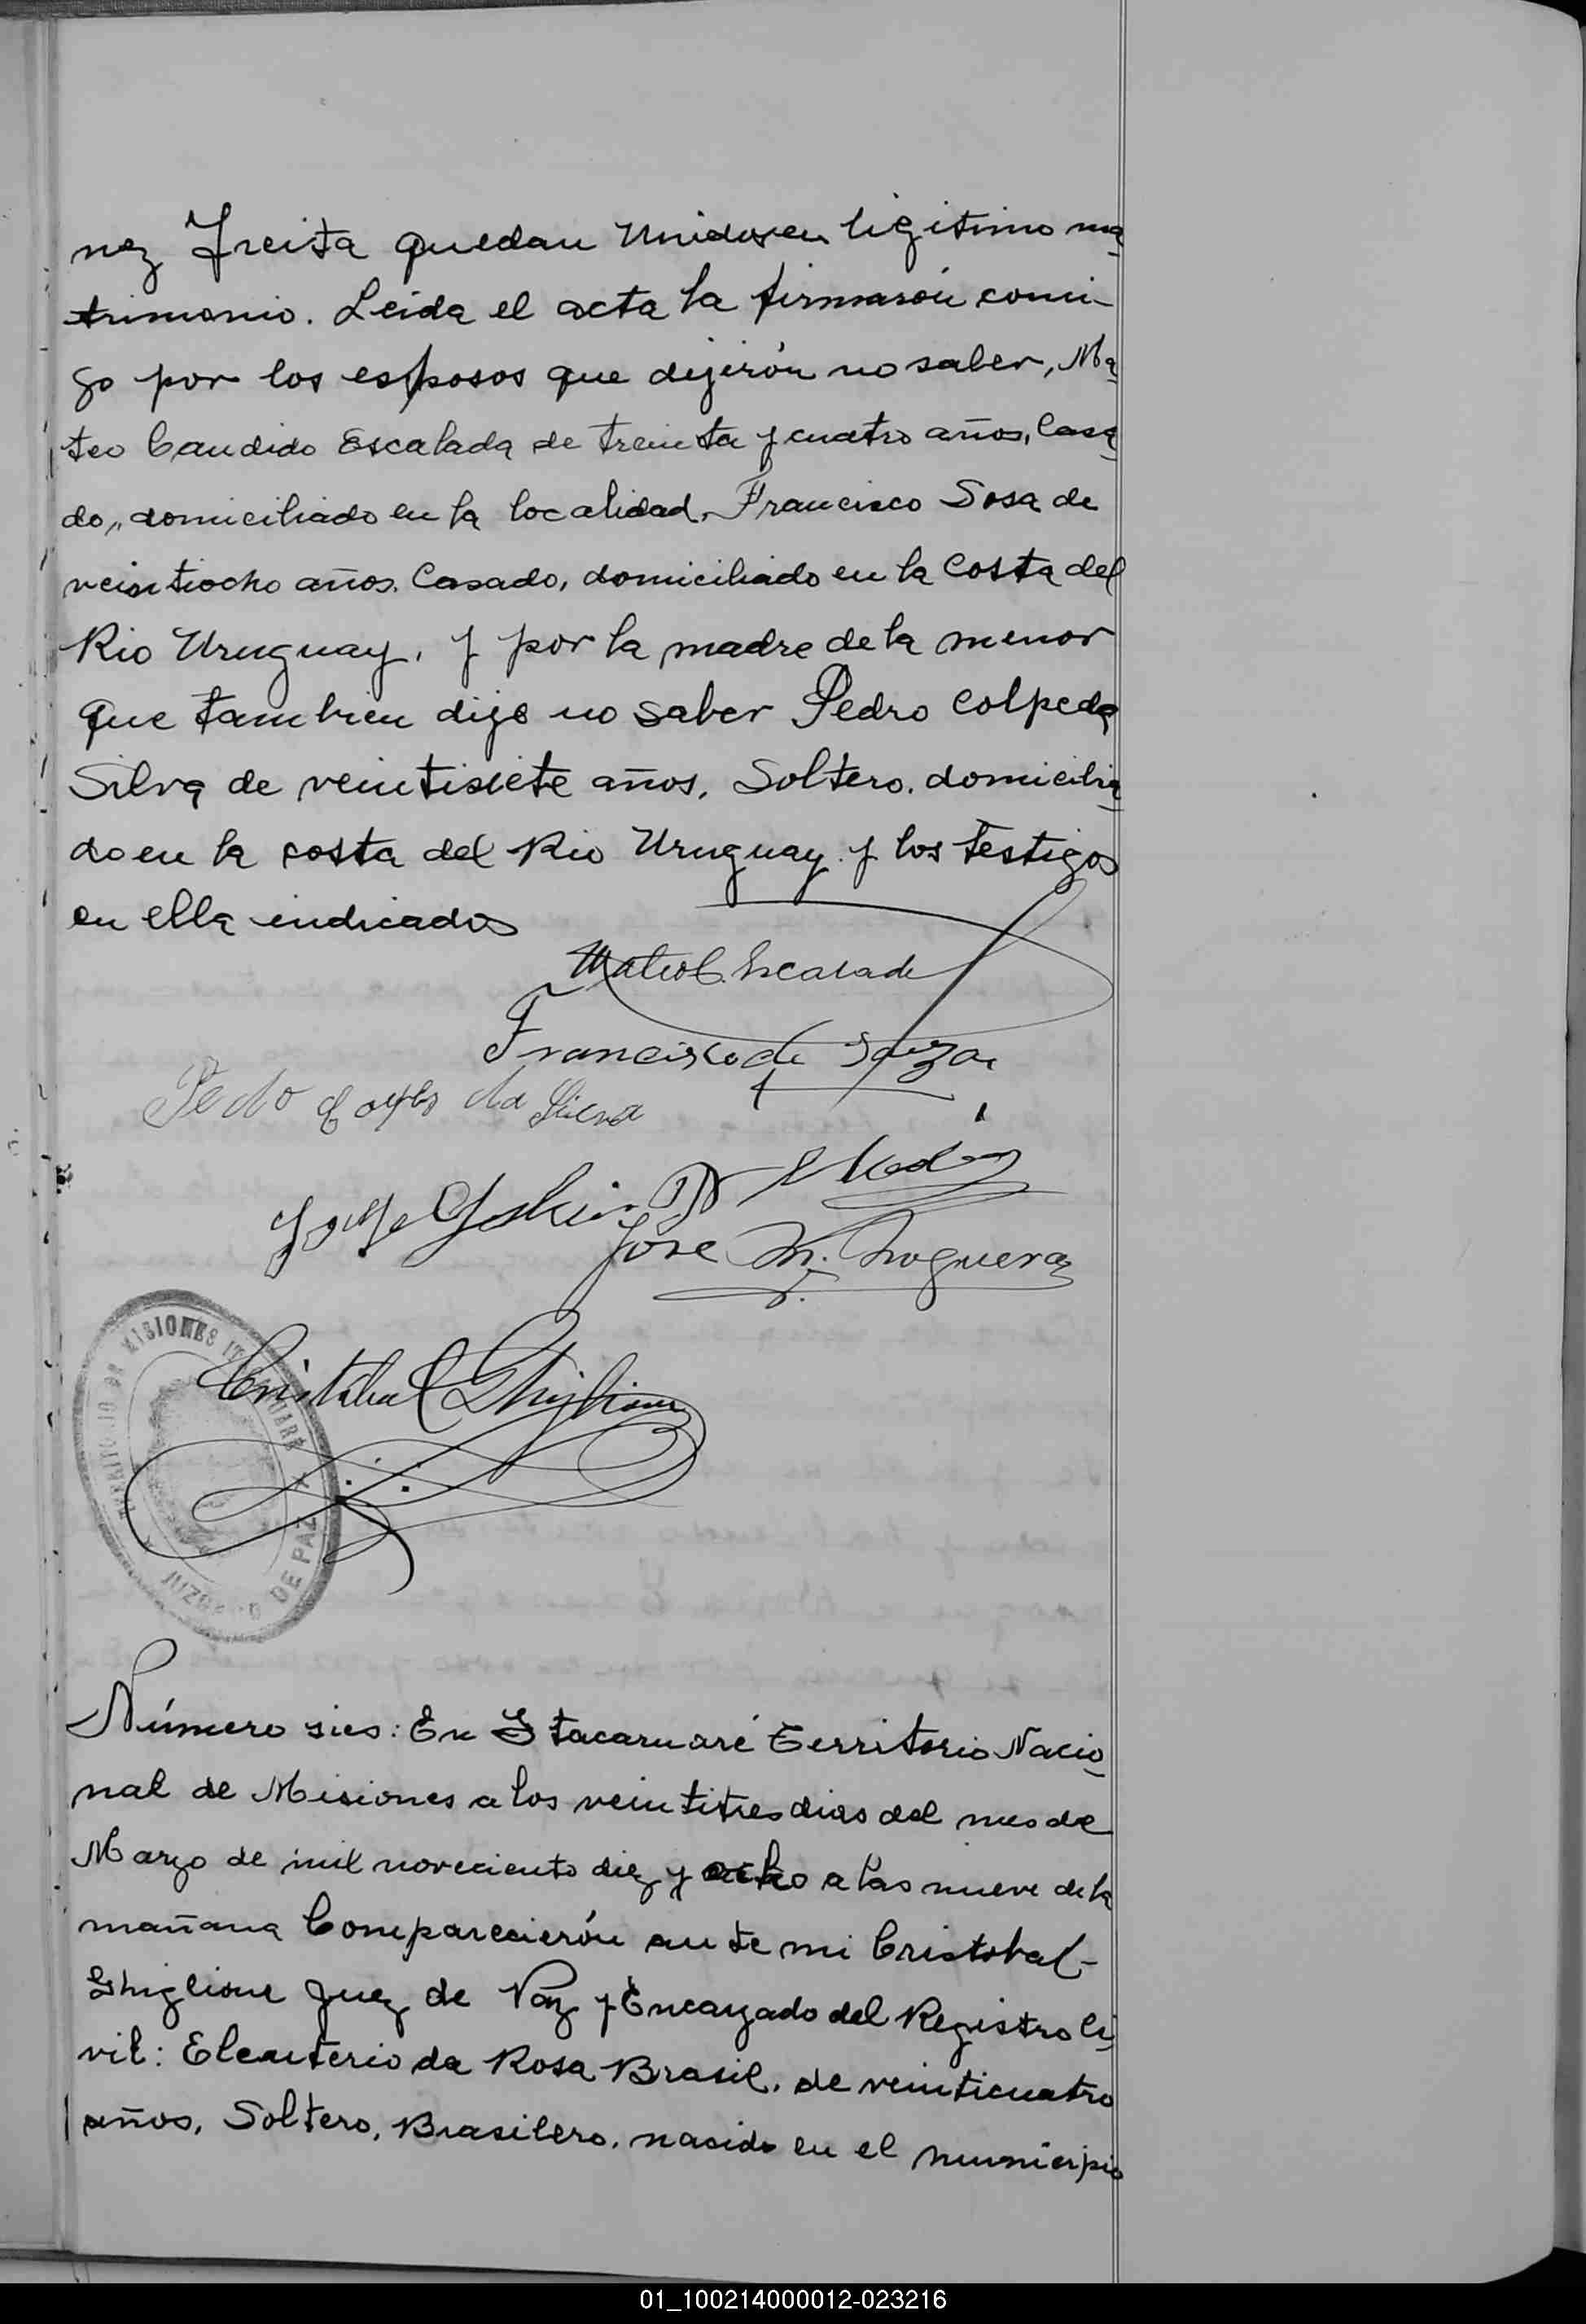 nez Freita quedan Unidos en ligitimo ma
trimonio. Leida el acta la firmarón comi-
go por los esposos que dijerón no saber, Ma
teo Candido Escalada de treinta y cuatro años, Casa
do, domiciliado en la localidad, Francisco Sosa de
veintiocho años. Casado, domiciliado en la Costa del
Rio Uruguay, y por la madre de la menor
que tambien dijo no saber Pedro Colpeda
Silva de veintisiete años, Soltero, domicilia
do en la costa del Rio Uruguay y los testigos
en ella indicados
Mateo C. Escalada
Francisco de Souza
Pedo da
Jose N. Noguera
Cristobal Ghiglione
TERRITORIO DE MISIONES
JUZGADO DE PAZ
Número sies: En Itacaruaré Territorio Nacio
nal de Misiones a los veintitres dias del mes de
Marzo de mil noveciento diez y ocho a las nueve de la
mañana Comparecierón ante mi Cristobal-
Ghiglione Juez de Paz y Encargado del Registro Ci
vil: Eleuterio da Rosa Brasil, de veinticuatro
años, Soltero, Brasilero, nacido en el municipio
01_100214000012-023216